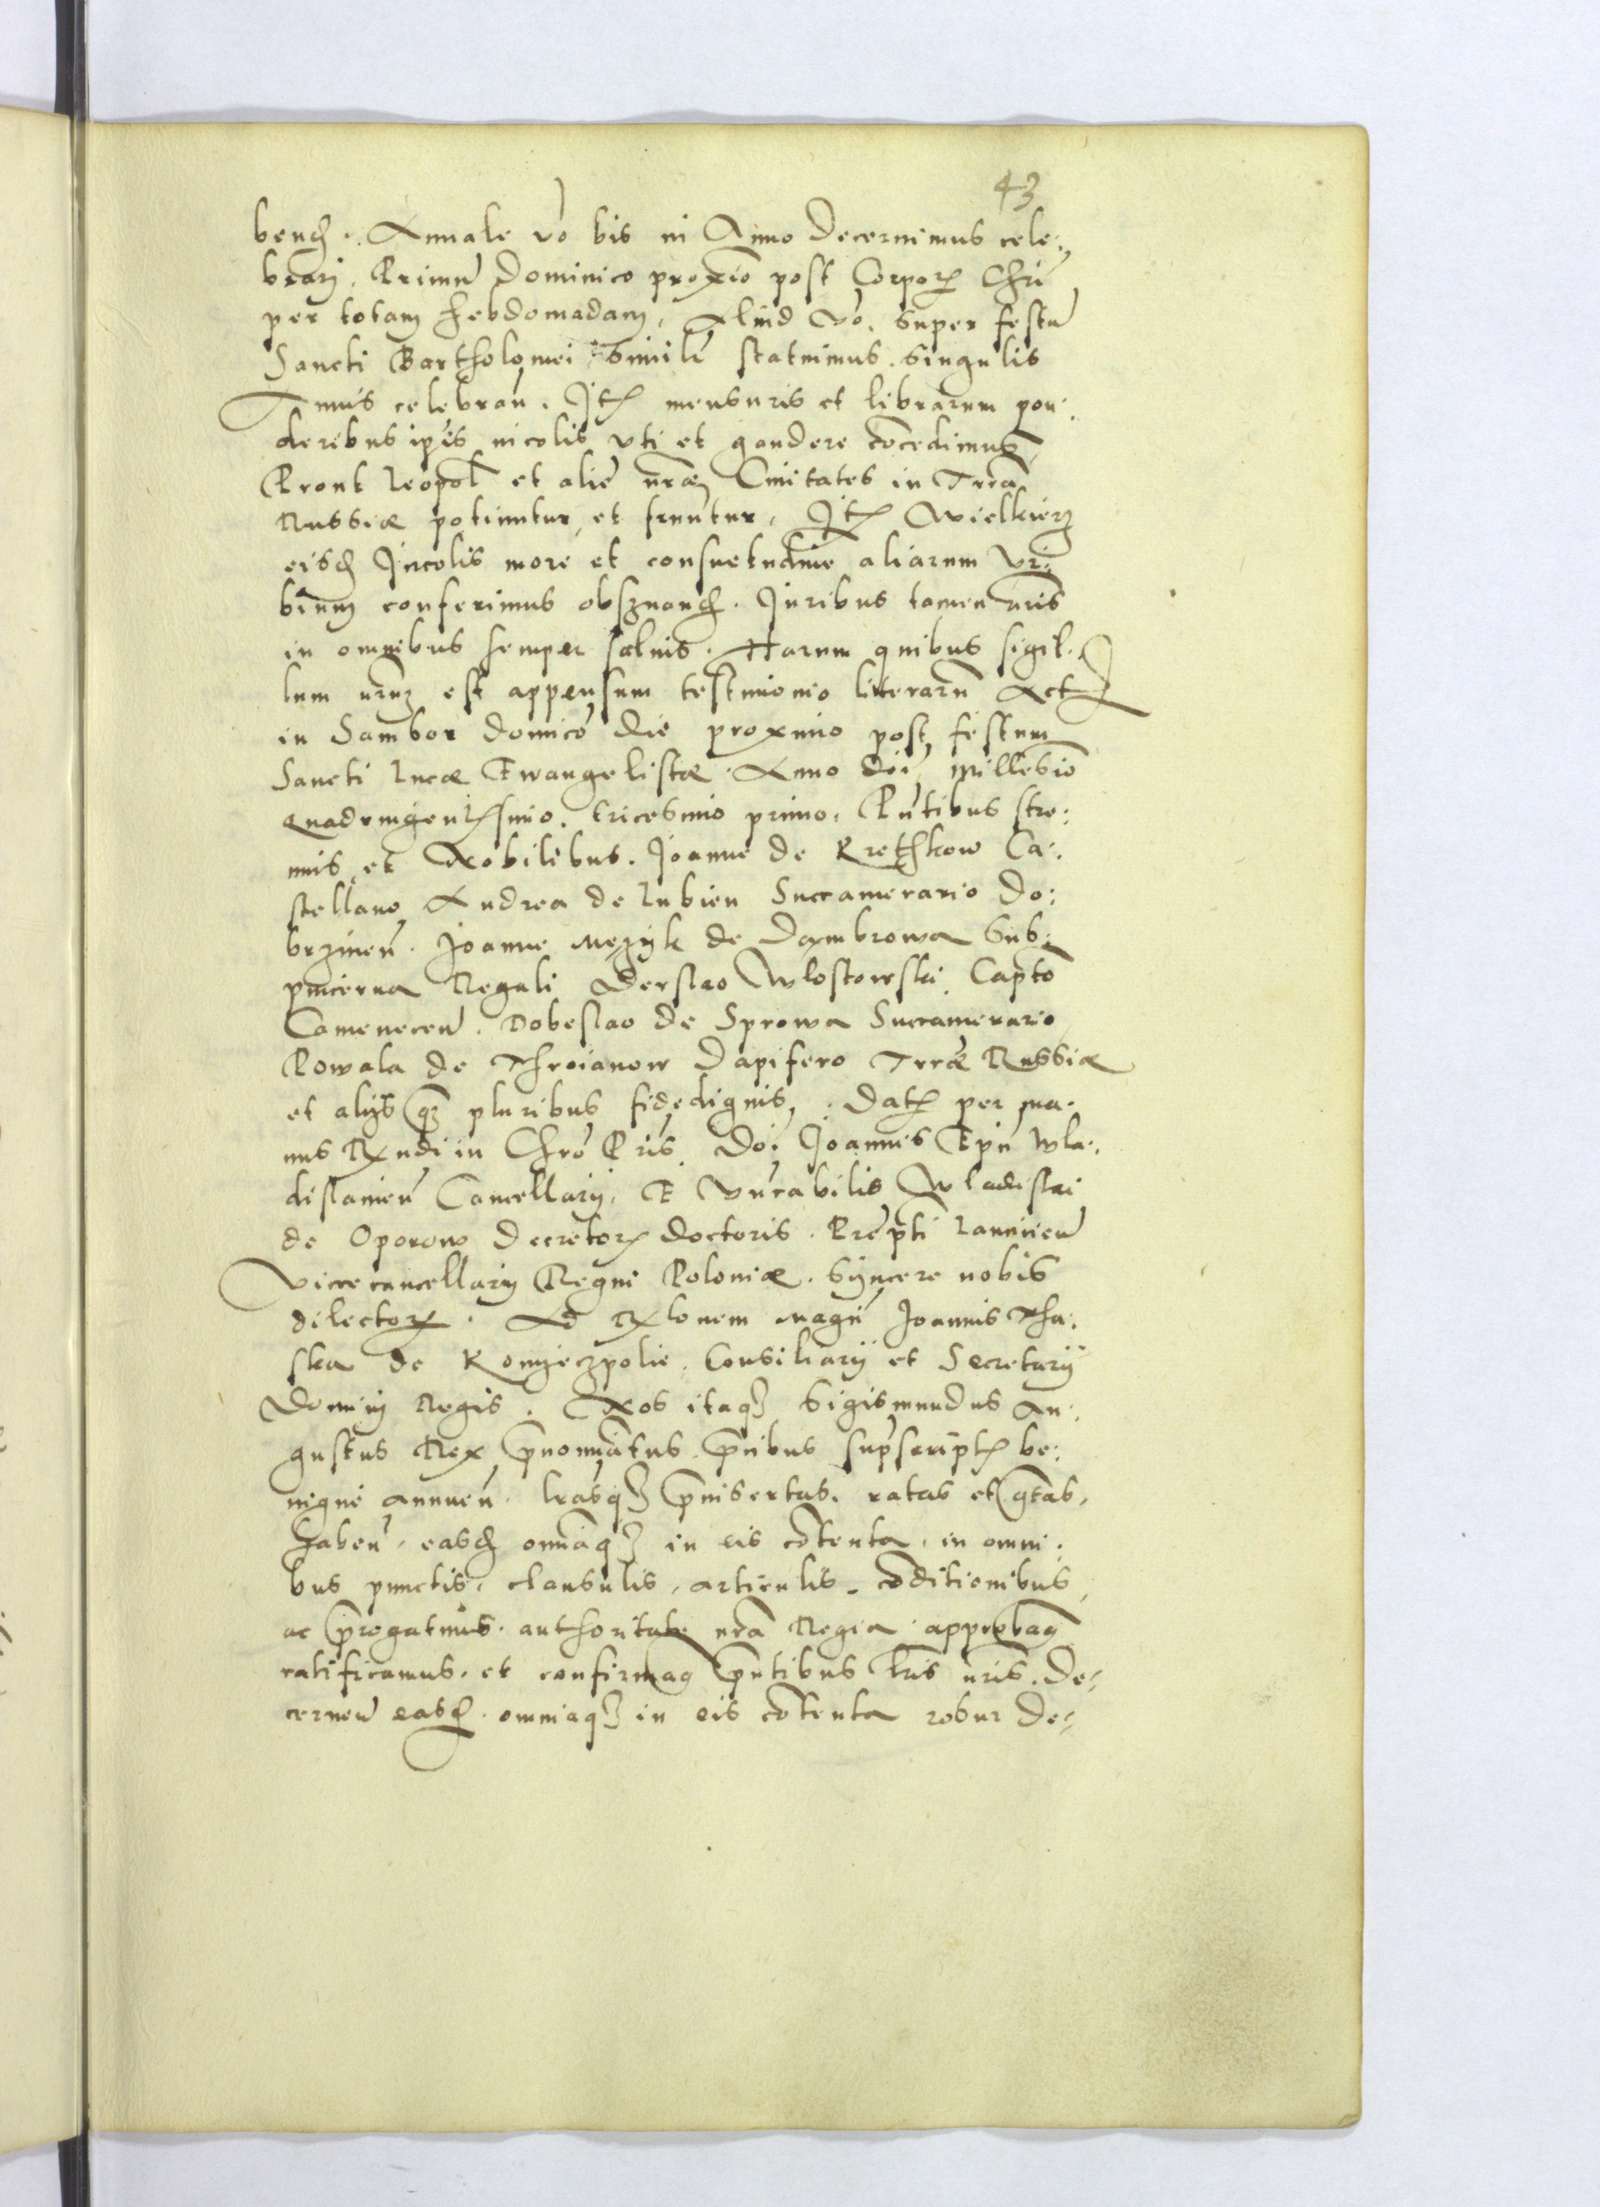 43
bend. Annale vo bis in Anno decernimus cele:
brari, Primu Dominico proxio post Corpor Chri
per totam hebdomadam, Aliud vo, super festu
Sancti Bartholomei simile statuimus singulis
Annis celebran. Ite mensuris et librarum pon:
deribus ipis incolis uti et gaudere cocedimus
Prout Leopol et alie nrae Civitates in Trra
Russiae potiuntur et fruuntur, Ite Wielkierz
eisd Incolis more et consuetudine aliarum Vr:
bium conferimus obseruand. Iuribus tamen nris
in omnibus semper saluis. Harum quibus sigil:
lum nrum est appensum testimonio literaru Act
in Sambor domico die proximo post festum
Sancti Lucae Ewangelistae. Anno doi Millesio
quadringentesimo, tricesimo primo, Pntibus stre:
nuis et Nobilibus. Joanne de Krethkow Ca:
stellano Andrea de Lubien Succamerario Do:
brzinen. Joanne Mezyk de Dambrowa Sub:
pincerna Regali Derslao Wlostowski Capto
Camenecen. Dobeslao de Sprowa Succamerario
Powala de Throianow Dapifero Trrae Russiae
et alijs pluribus fidedignis. Dat per ma:
nus Rndi in Chro Pris, doi Joannis Epi Wla:
dislauien Cancellarij, E Vnrabilis Wladislai
de Oporow Decretor doctoris. Prepti Lanicien
Vicecancellarij Regni Poloniae. syncere nobis
dilector. Ad Rlonem Magci Joannis Tha:
ska de Konyeczpolie, Consiliarij et Secretarij
Domini Regis. Nos itaq Sigismundus Au:
gustus Rex pnominatus pcibus supscript be:
nigne annuen. lrasq pinsertas, ratas et gtas
haben, easd omniaq in eis cotenta, in omni:
bus punctis, clausulis, articulis, coditionibus
ac progatiuis. authoritate nra Regia approbam
ratificamus, et confirmam pntibus lris nris. De:
cernen easd. omniaq in eis cotenta robur de: